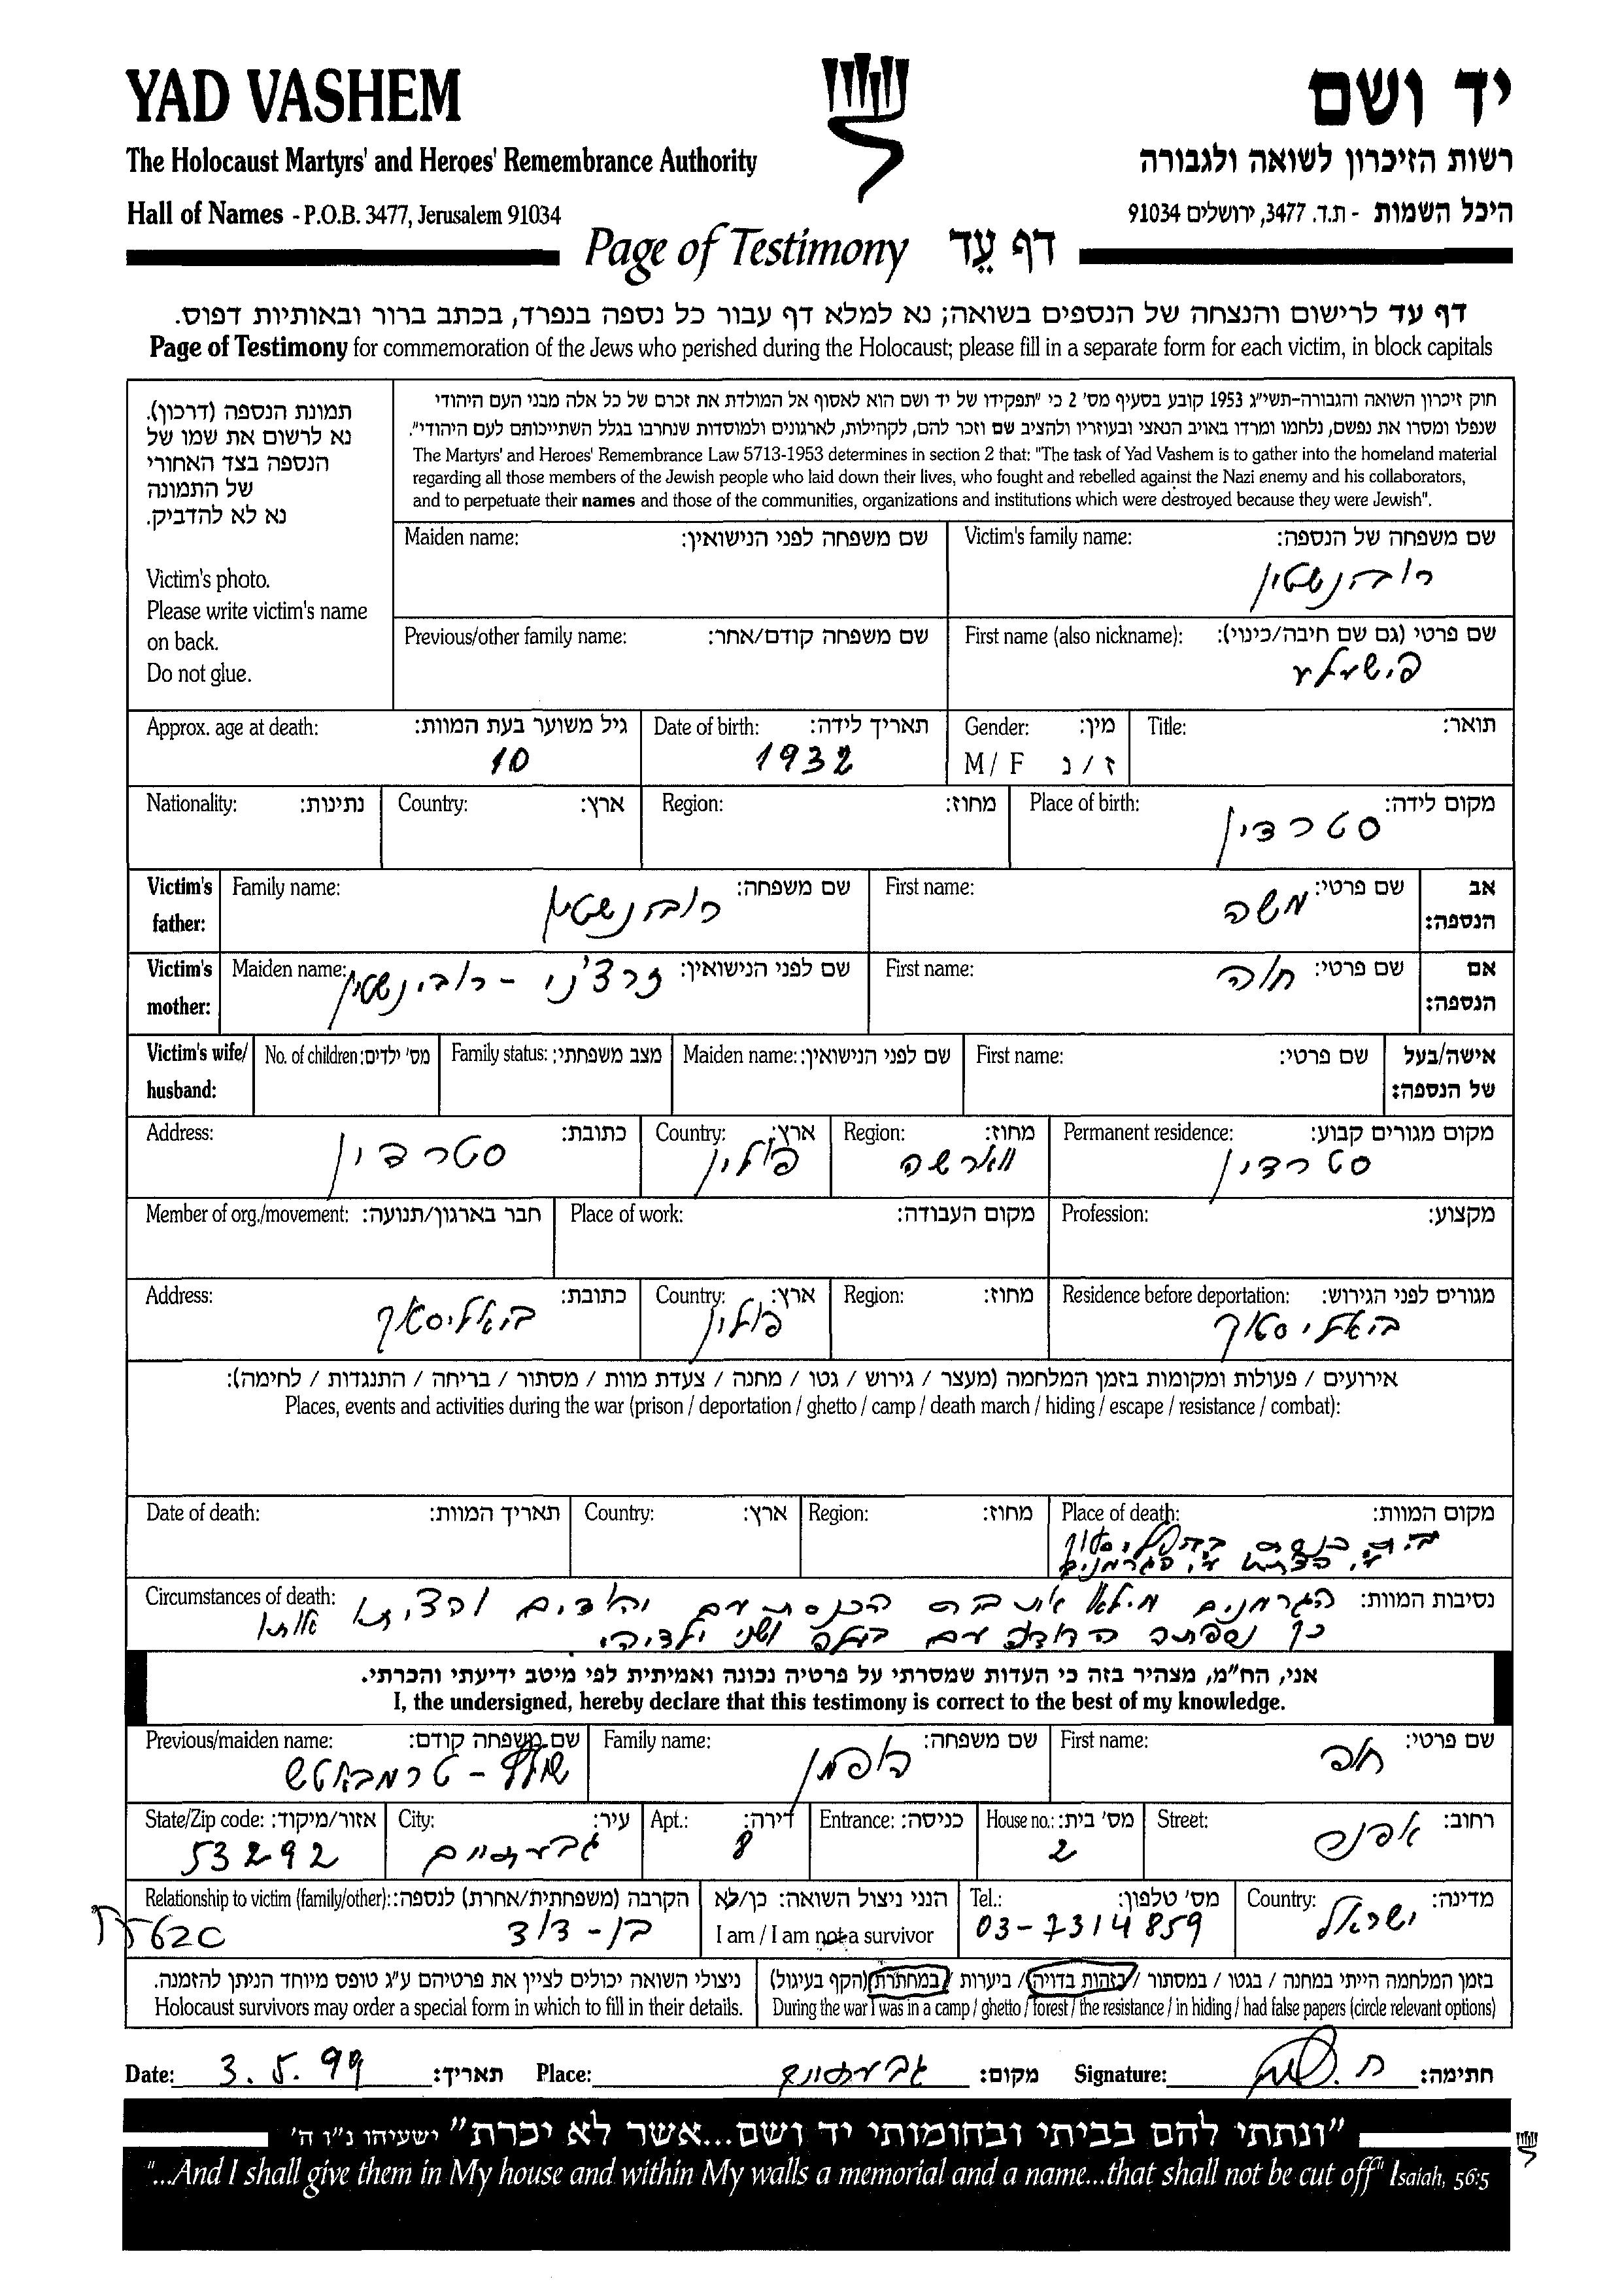 YAD VASHEM
יד ושם
The Holocaust Martyrs' and Heroes' Remembrance Authority
רשות הזיכרון לשואה ולגבורה
Hall of Names - P.O.B. 3477, Jerusalem 91034
היכל השמות - ת.ד. 3477, ירושלים 91034
Page of Testimony דף עֵד
דף עד לרישום והנצחה של הנספים בשואה; נא למלא דף עבור כל נספה בנפרד, בכתב ברור ובאותיות דפוס.
Page of Testimony for commemoration of the Jews who perished during the Holocaust; please fill in a separate form for each victim, in block capitals
תמונת הנספה (דרכון).
נא לרשום את שמו של
הנספה בצד האחורי
של התמונה
נא לא להדביק.
Victim's photo.
Please write victim's name
on back.
Do not glue.
חוק זיכרון השואה והגבורה-תשי"ג 1953 קובע בסעיף מס' 2 כי "תפקידו של יד ושם הוא לאסוף אל המולדת את זכרם של כל אלה מבני העם היהודי
שנפלו ומסרו את נפשם, נלחמו ומרדו באויב הנאצי ובעוזריו ולהציב שם וזכר להם, לקהילות, לארגונים ולמוסדות שנחרבו בגלל השתייכותם לעם היהודי".
The Martyrs' and Heroes' Remembrance Law 5713-1953 determines in section 2 that: "The task of Yad Vashem is to gather into the homeland material
regarding all those members of the Jewish people who laid down their lives, who fought and rebelled against the Nazi enemy and his collaborators,
and to perpetuate their names and those of the communities, organizations and institutions which were destroyed because they were Jewish".
Victim's family name: שם משפחה של הנספה:
רובהנשטין
Maiden name: שם משפחה לפני הנישואין:
First name (also nickname): שם פרטי (גם שם חיבה/כינוי):
פישעלע
Previous/other family name: שם משפחה קודם/אחר:
Title: תואר:
Gender: מין:
M / F ז / נ
Date of birth: תאריך לידה:
1932
Approx. age at death: גיל משוער בעת המוות:
10
Place of birth: מקום לידה:
סטרדין
Region: מחוז:
Country: ארץ:
Nationality: נתינות:
Victim's father: אב הנספה:
First name: שם פרטי:
משה
Family name: שם משפחה:
רובהנשטין
Victim's mother: אם הנספה:
First name: שם פרטי:
חוה
Maiden name: שם לפני הנישואין:
זרצ'ני - רובינשטין
Victim's wife/ husband: אישה/בעל של הנספה:
First name: שם פרטי:
Maiden name: שם לפני הנישואין:
Family status: מצב משפחתי:
No. of children: מס' ילדים:
Permanent residence: מקום מגורים קבוע:
סטרדין
Region: מחוז:
ווארשה
Country: ארץ:
פולין
Address: כתובת:
סטרדין
Profession: מקצוע:
Place of work: מקום העבודה:
Member of org./movement: חבר בארגון/תנועה:
Residence before deportation: מגורים לפני הגירוש:
ביאליסטוק
Region: מחוז:
Country: ארץ:
פולין
Address: כתובת:
ביאליסטוק
אירועים / פעולות ומקומות בזמן המלחמה (מעצר / גירוש / גטו / מחנה / צעדת מוות / מסתור / בריחה / התנגדות / לחימה):
Places, events and activities during the war (prison / deportation / ghetto / camp / death march / hiding / escape / resistance / combat):
Place of death: מקום המוות:
הגרמנים
Region: מחוז:
Country: ארץ:
Date of death: תאריך המוות:
Circumstances of death: נסיבות המוות:
הגרמנים מילאו את בית הכנסת עם יהודים והציתו אותו
כך נספתה הדודה עם בעלה ושני ילדיה
אני, הח"מ, מצהיר בזה כי העדות שמסרתי על פרטיה נכונה ואמיתית לפי מיטב ידיעתי והכרתי.
I, the undersigned, hereby declare that this testimony is correct to the best of my knowledge.
First name: שם פרטי:
Family name: שם משפחה:
הפמן
Previous/maiden name: שם משפחה קודם:
Street: רחוב:
House no.: מס' בית:
2
Entrance: כניסה:
Apt.: דירה:
8
City: עיר:
גבעתיים
State/Zip code: אזור/מיקוד:
53292
Country: מדינה:
ישראל
Tel.: מס' טלפון:
03-7314859
הנני ניצול השואה: כן/לא
I am / I am not a survivor
Relationship to victim (family/other): הקרבה (משפחתית/אחרת) לנספה:
בן-דוד
בזמן המלחמה הייתי במחנה / בגטו / במסתור / בזהות בדויה / ביערות / במחתרת (הקף בעיגול)
During the war I was in a camp / ghetto / forest / the resistance / in hiding / had false papers (circle relevant options)
ניצולי השואה יכולים לציין את פרטיהם ע"ג טופס מיוחד הניתן להזמנה.
Holocaust survivors may order a special form in which to fill in their details.
Date: 3.5.99 תאריך: Place: גבעתיים מקום: Signature: חתימה:
"ונתתי להם בביתי ובחומותי יד ושם...אשר לא יכרת" ישעיהו נ"ו ה'
"...And I shall give them in My house and within My walls a memorial and a name...that shall not be cut off" Isaiah, 56:5